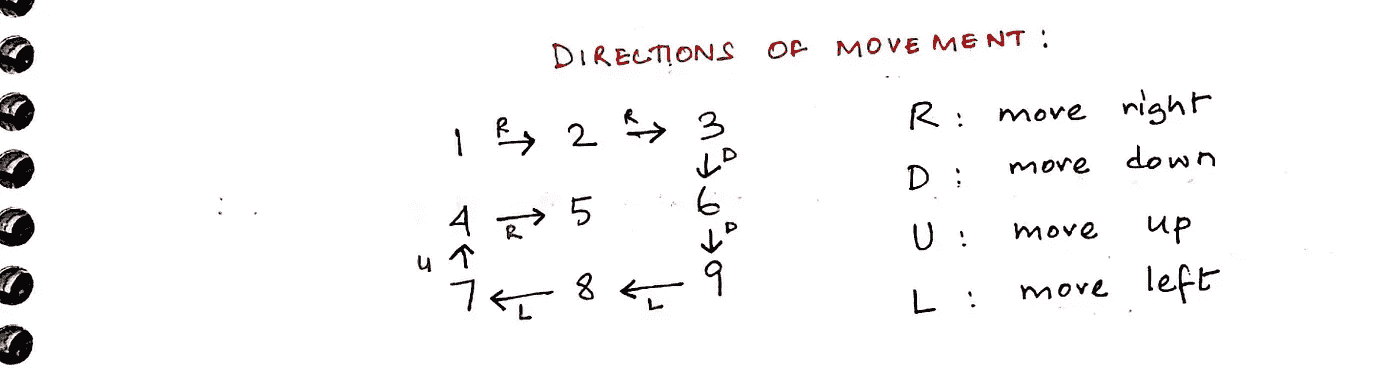 DIRECTIONS OF MOVEMENT :
1 R→ 2 R→ 3
↓D
4 R→ 5 6
U↑ ↓D
7 ←L 8 ←L 9
R : move right
D : move down
U : move up
L : move left